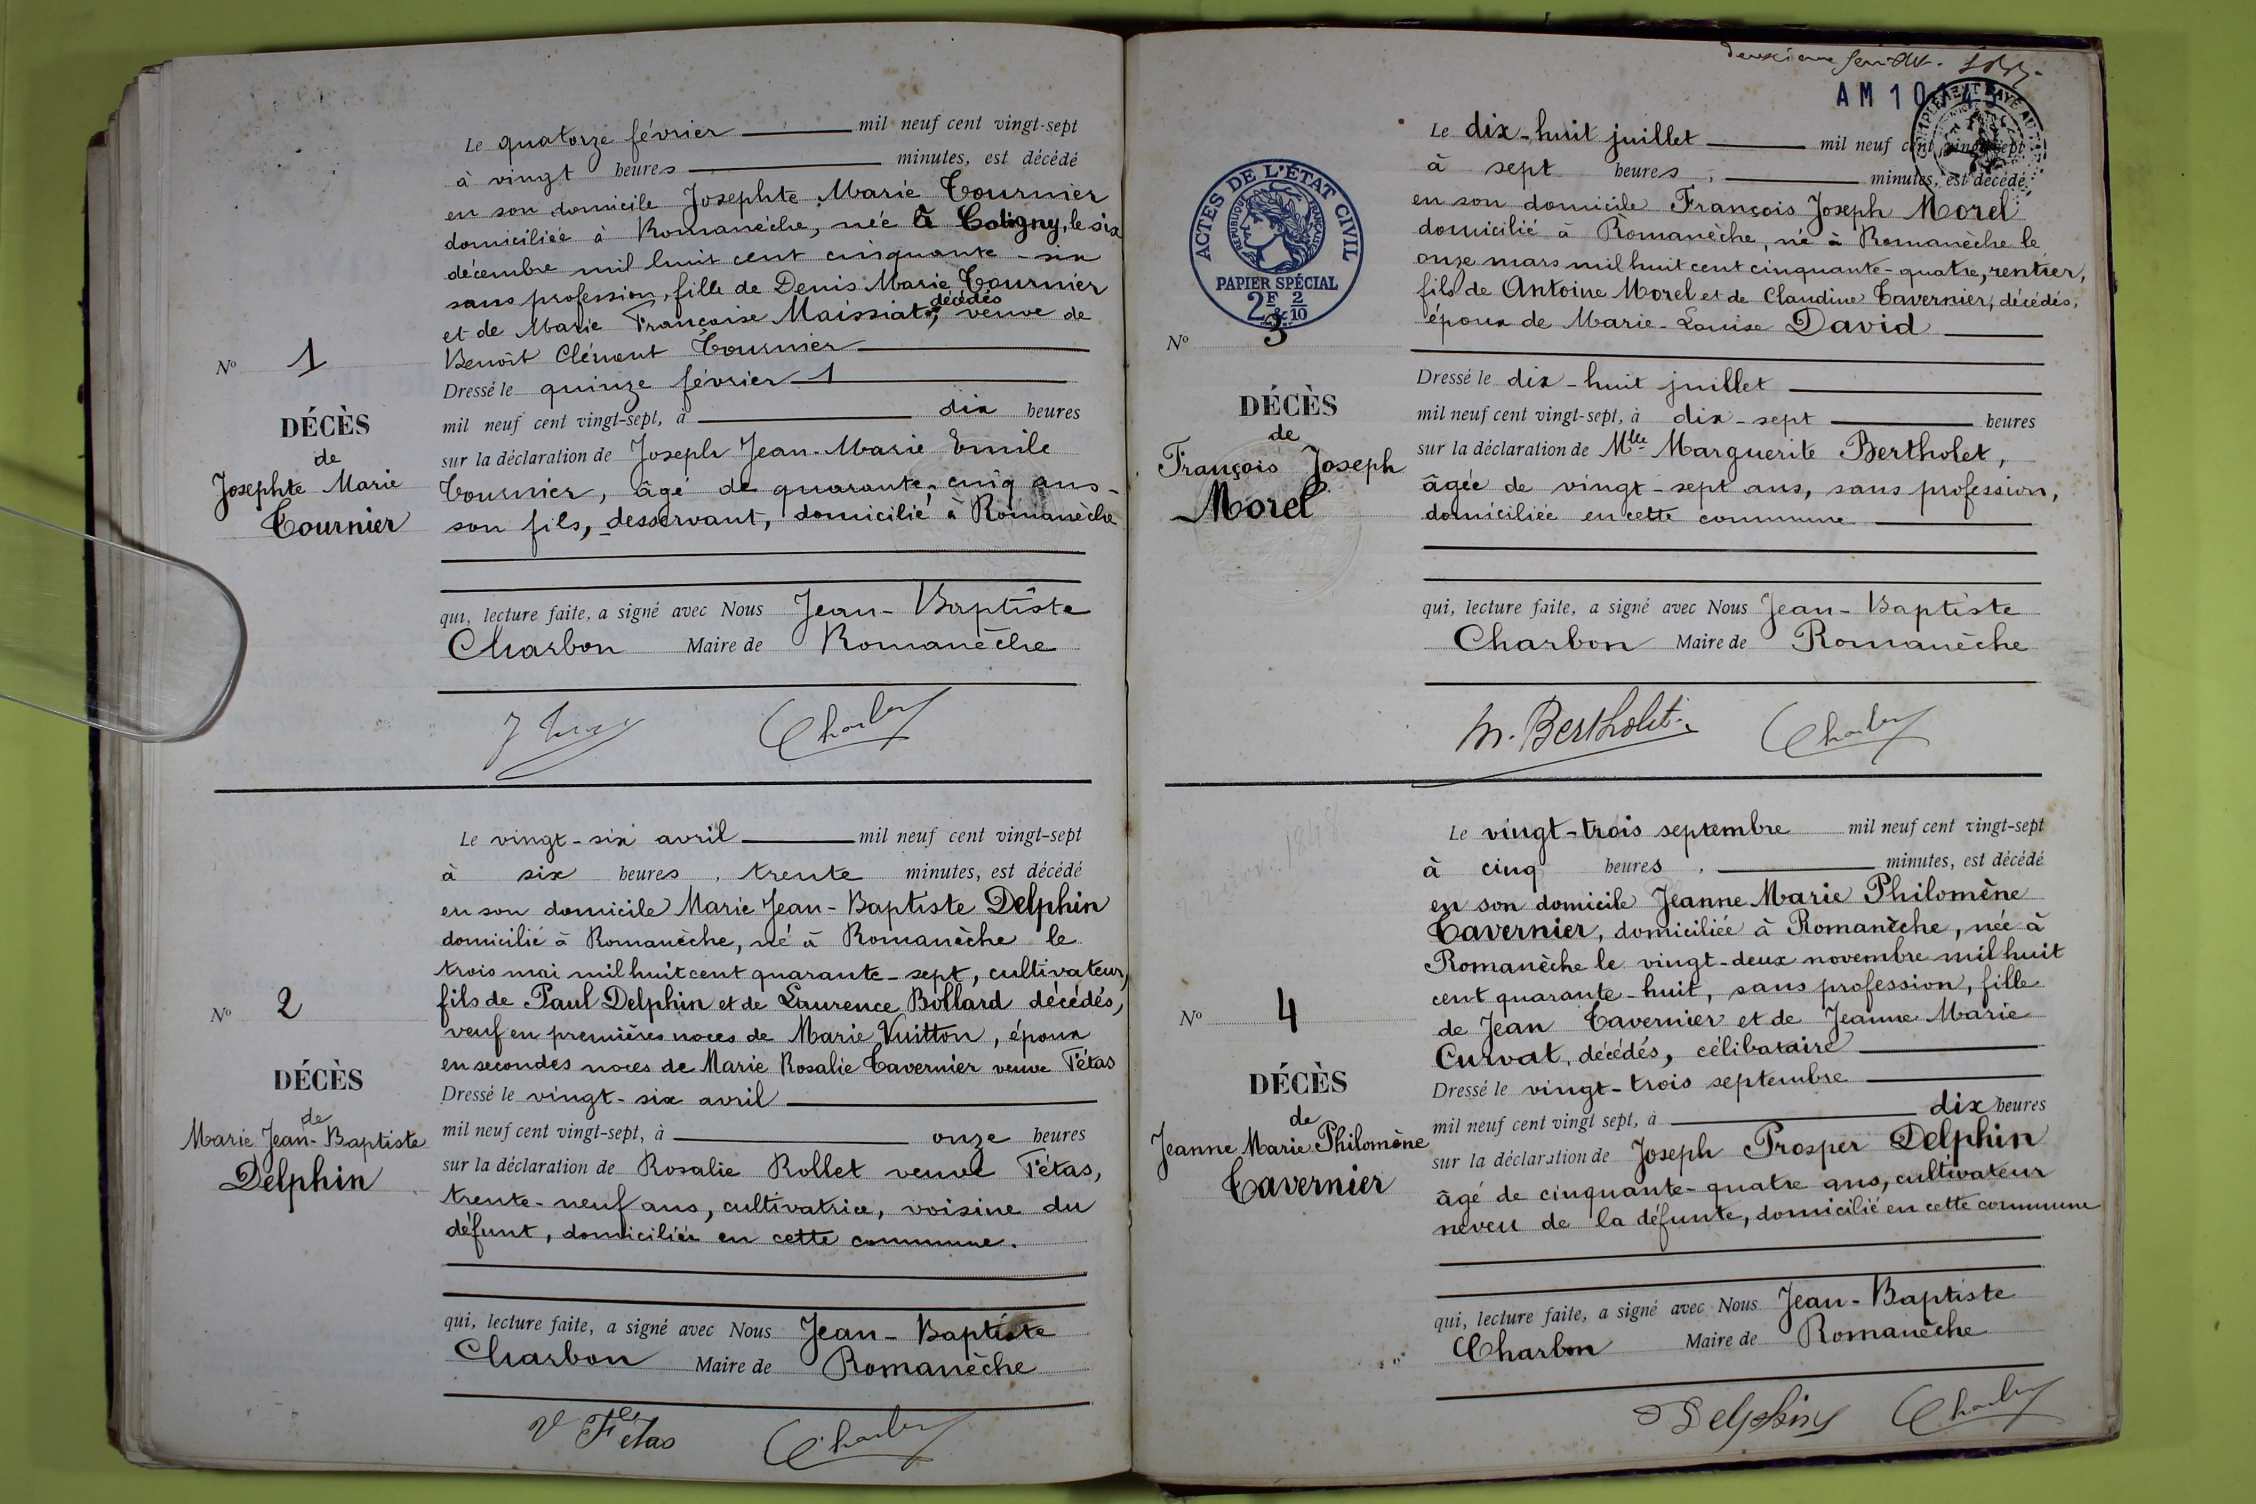 Le quatorze février mil neuf cent vingt-sept
à vingt heures minutes, est décédé
en son domicile Josephte Marie Tournier
domiciliée à Romanèche, née à Coligny, le six
décembre mil huit cent cinquante-six
sans profession, fille de Denis Marie Tournier
décédés
et de Marie Françoise Maissiat, veuve de
Benoît Clément Tournier
Nº 1
DÉCÈS
de
Josephte Marie
Tournier
Dressé le quinze février
mil neuf cent vingt-sept, à dix heures
sur la déclaration de Joseph Jean-Marie Emile
Tournier, âgé de quarante-cinq ans
son fils, desservant, domicilié à Romanèche
qui, lecture faite, a signé avec Nous Jean-Baptiste
Charbon Maire de Romanèche
Charbon
Le vingt-six avril mil neuf cent vingt-sept
à six heures, trente minutes, est décédé
en son domicile Marie Jean-Baptiste Delphin
domicilié à Romanèche, né à Romanèche le
trois mai mil huit cent quarante-sept, cultivateur,
fils de Paul Delphin et de Laurence Bollard décédés,
veuf en premières noces de Marie Vuitton, époux
en secondes noces de Marie Rosalie Tavernier veuve Tétas
Nº 2
DÉCÈS
de
Marie Jean-Baptiste
Delphin
Dressé le vingt-six avril
mil neuf cent vingt-sept, à onze heures
sur la déclaration de Rosalie Rollet veuve Tétas,
trente-neuf ans, cultivatrice, voisine du
défunt, domiciliée en cette commune.
qui, lecture faite, a signé avec Nous Jean-Baptiste
Charbon Maire de Romanèche
Vᵛᵉ Tétas Charbon
deuxième
AM 10
ACTES DE L'ÉTAT CIVIL
RÉPUBLIQUE FRANÇAISE
PAPIER SPÉCIAL
2F & 2/10
Le dix-huit juillet mil neuf cent vingt-sept
à sept heures, minutes, est décédé
en son domicile François Joseph Morel
domicilié à Romanèche, né à Romanèche le
onze mars mil huit cent cinquante-quatre, rentier,
fils de Antoine Morel et de Claudine Tavernier, décédés,
époux de Marie-Louise David
Nº 3
DÉCÈS
de
François Joseph
Morel
Dressé le dix-huit juillet
mil neuf cent vingt-sept, à dix-sept heures
sur la déclaration de Mlle Marguerite Bertholet,
âgée de vingt-sept ans, sans profession,
domiciliée en cette commune
qui, lecture faite, a signé avec Nous Jean-Baptiste
Charbon Maire de Romanèche
M. Bertholet Charbon
Le vingt-trois septembre mil neuf cent vingt-sept
à cinq heures, minutes, est décédé
en son domicile Jeanne Marie Philomène
Tavernier, domiciliée à Romanèche, née à
Romanèche le vingt-deux novembre mil huit
cent quarante-huit, sans profession, fille
de Jean Tavernier et de Jeanne Marie
Curvat, décédés, célibataire
Nº 4
DÉCÈS
de
Jeanne Marie Philomène
Tavernier
Dressé le vingt-trois septembre
mil neuf cent vingt sept, à dix heures
sur la déclaration de Joseph Prosper Delphin
âgé de cinquante-quatre ans, cultivateur
neveu de la défunte, domicilié en cette commune
qui, lecture faite, a signé avec Nous Jean-Baptiste
Charbon Maire de Romanèche
Delphin Charbon